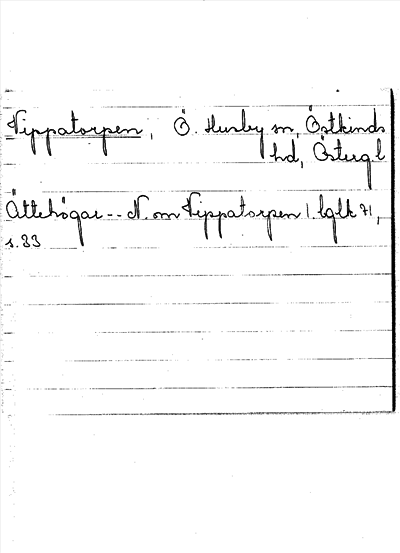 Vippatorpen, Ö. Husby sn, Östkinds
hd, Östergl
Ättehögar -- N. om Vippatorpen 1. bglk 71,
s. 33